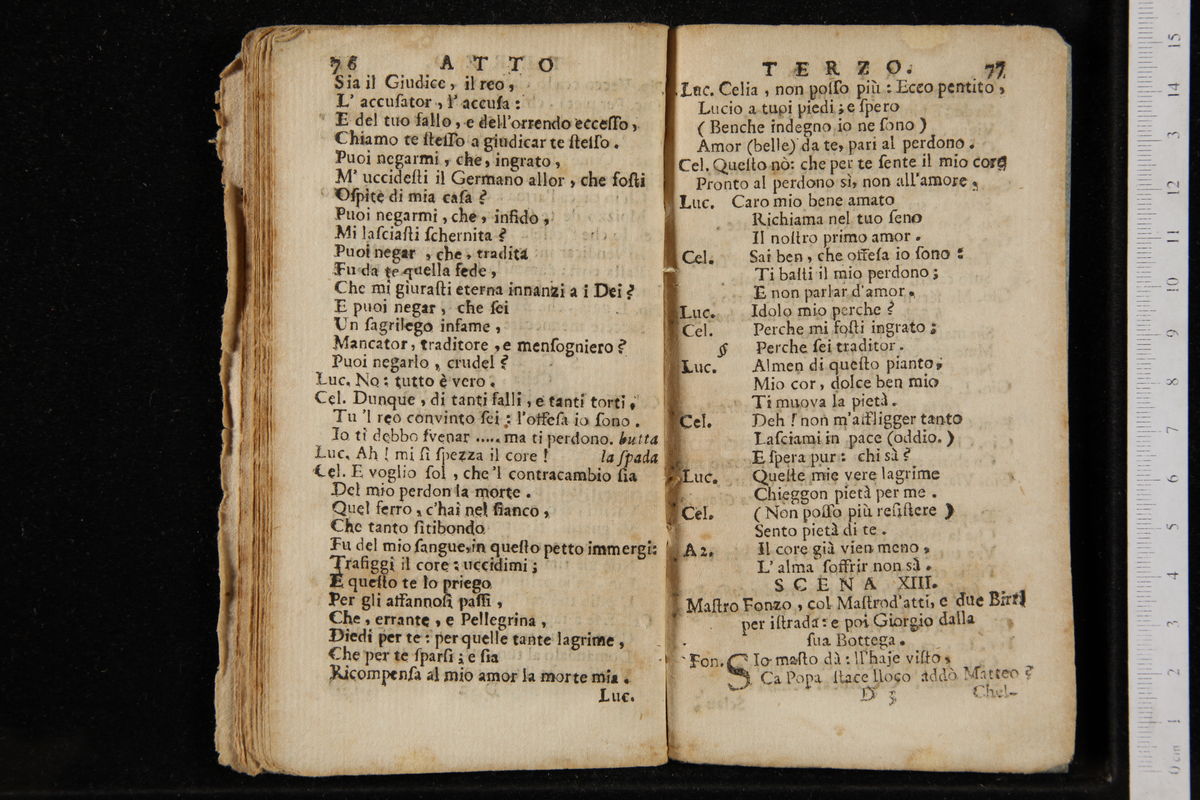 76 ATTO
Sia il Giudice, il reo,
L' accusator, l' accusa:
E del tuo fallo, e dell'orrendo eccesso,
Chiamo te stesso a giudicar te stesso.
Puoi negarmi, che, ingrato,
M' uccidesti il Germano allor, che fosti
Ospite di mia casa?
Puoi negarmi, che, infido,
Mi lasciasti schernita?
Puoi negar, che, tradita
Fu da te quella fede,
Che mi giurasti eterna innanzi a i Dei?
E puoi negar, che sei
Un sagrilego infame,
Mancator, traditore, e mensogniero?
Puoi negarlo, crudel?
Luc. No: tutto è vero.
Cel. Dunque, di tanti falli, e tanti torti,
Tu 'l reo convinto sei: l'offesa io sono.
Io ti debbo svenar ..... ma ti perdono. butta
Luc. Ah! mi si spezza il core! la spada
Cel. E voglio sol, che 'l contracambio sia
Del mio perdon la morte.
Quel ferro, c'hai nel fianco,
Che tanto sitibondo
Fu del mio sangue, in questo petto immergi:
Trafiggi il core: uccidimi;
E questo te lo priego
Per gli affannosi passi,
Che, errante, e Pellegrina,
Diedi per te: per quelle tante lagrime,
Che per te sparsi; e sia
Ricompensa al mio amor la morte mia.
Luc.
TERZO. 77
Luc. Celia, non posso più: Ecco pentito,
Lucio a tuoi piedi; e spero
(Benche indegno io ne sono)
Amor (belle) da te, pari al perdono.
Cel. Questo nò: che per te sente il mio core
Pronto al perdono sì, non all'amore,
Luc. Caro mio bene amato
Richiama nel tuo seno
Il nostro primo amor.
Cel. Sai ben, che offesa io sono:
Ti basti il mio perdono;
E non parlar d'amor.
Luc. Idolo mio perche?
Cel. Perche mi fosti ingrato;
§ Perche sei traditor.
Luc. Almen di questo pianto,
Mio cor, dolce ben mio
Ti muova la pietà.
Cel. Deh! non m'affligger tanto
Lasciami in pace (oddio.)
E spera pur: chi sà?
Luc. Queste mie vere lagrime
Chieggon pietà per me.
Cel. (Non posso più resistere)
Sento pietà di te.
A 2. Il core già vien meno,
L' alma soffrir non sà.
SCENA XIII.
Mastro Fonzo, col Mastrod'atti, e due Birri
per istrada: e poi Giorgio dalla
sua Bottega.
Fon. SIo masto dà: ll'haje visto,
Ca Popa stace lloco addò Matteo?
D 3 Chel-